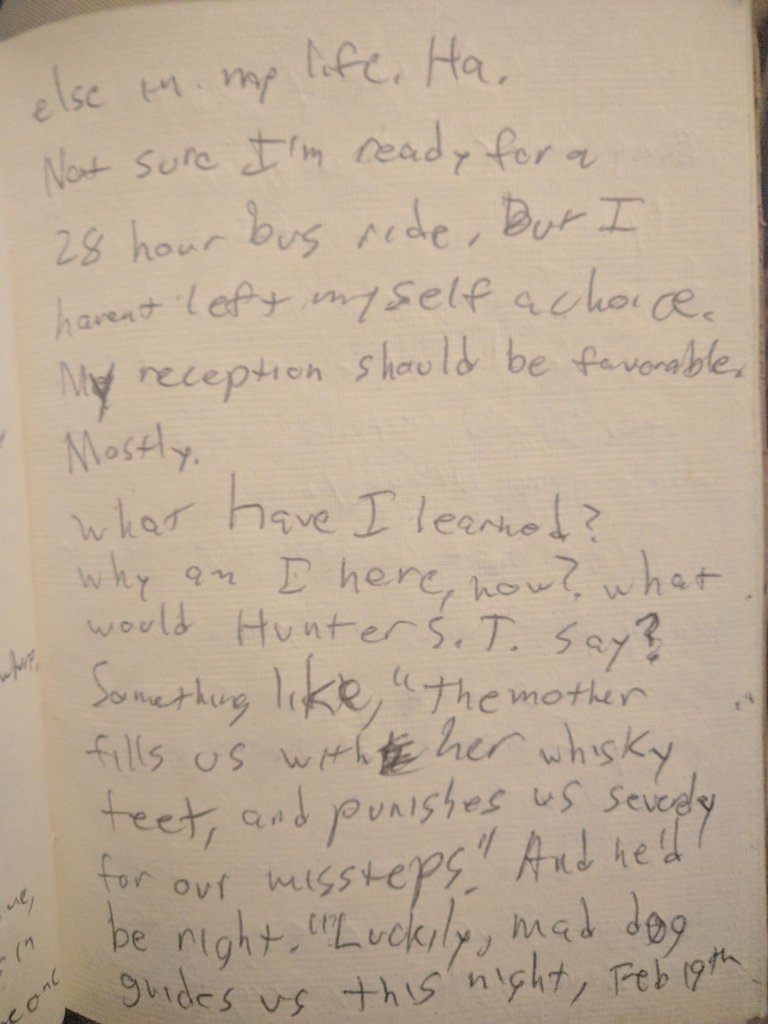 else in my life. Ha.
Not sure I'm ready for a
28 hour bus ride, But I
havent left myself a choice.
My reception should be favorable.
Mostly.
what have I learned?
why am I here, now? what
would Hunter S. T. say?
Something like, "the mother
fills us with her whisky
teet, and punishes us severely
for our missteps." And he'd
be right. "Luckily, mad dog
guides us this night, Feb 19th